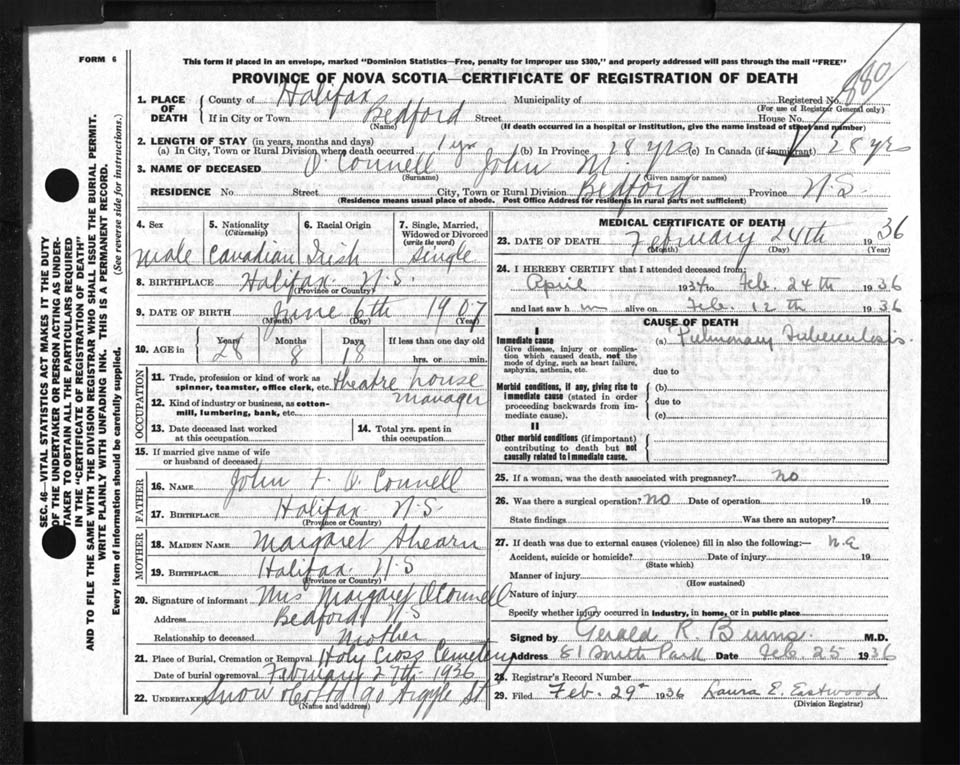 FORM 6
This form if placed in an envelope, marked "Dominion Statistics—Free, penalty for improper use $300," and properly addressed will pass through the mail "FREE"
PROVINCE OF NOVA SCOTIA—CERTIFICATE OF REGISTRATION OF DEATH
1. PLACE OF DEATH County of Halifax Municipality of Registered No.
(For use of Registrar General only)
If in City or Town Bedford Street House No.
(Name) (If death occurred in a hospital or institution, give the name instead of street and number)
2. LENGTH OF STAY (in years, months and days)
(a) In City, Town or Rural Division where death occurred 1 yr (b) In Province 28 yrs (c) In Canada (if immigrant) 28 yrs
3. NAME OF DECEASED O'Connell John M.
(Surname) (Given name or names)
RESIDENCE No. Street City, Town or Rural Division Bedford Province N.S.
(Residence means usual place of abode. Post Office Address for residents in rural parts not sufficient)
4. Sex 5. Nationality (Citizenship) 6. Racial Origin 7. Single, Married, Widowed or Divorced (write the word)
male Canadian Irish Single
8. BIRTHPLACE Halifax N.S.
(Province or Country)
9. DATE OF BIRTH June 6th 1907
(Month) (Day) (Year)
10. AGE in Years Months Days If less than one day old
28 8 18 hrs. or min.
OCCUPATION
11. Trade, profession or kind of work as spinner, teamster, office clerk, etc. theatre house manager
12. Kind of industry or business, as cotton-mill, lumbering, bank, etc.
13. Date deceased last worked at this occupation
14. Total yrs. spent in this occupation
15. If married give name of wife or husband of deceased
FATHER
16. NAME John F. O'Connell
17. BIRTHPLACE Halifax N.S.
(Province or Country)
MOTHER
18. MAIDEN NAME Margaret Ahearn
19. BIRTHPLACE Halifax N S
(Province or Country)
20. Signature of informant Mrs Margaret O'Connell
Address Bedford N S
Relationship to deceased Mother
21. Place of Burial, Cremation or Removal Holy Cross Cemetery
Date of burial or removal February 27th 1936
22. UNDERTAKER Snow & Co Ltd 90 Argyle St
(Name and address)
MEDICAL CERTIFICATE OF DEATH
23. DATE OF DEATH February 24th 1936
(Month) (Day) (Year)
24. I HEREBY CERTIFY that I attended deceased from:
April 1934 to Feb. 24th 1936
and last saw him alive on Feb. 12th 1936
CAUSE OF DEATH
I
Immediate cause
Give disease, injury or complication which caused death, not the mode of dying, such as heart failure, asphyxia, asthenia, etc.
(a) Pulmonary Tuberculosis.
due to
Morbid conditions, if any, giving rise to immediate cause (stated in order proceeding backwards from immediate cause).
(b)
due to
(c)
II
Other morbid conditions (if important) contributing to death but not causally related to immediate cause.
25. If a woman, was the death associated with pregnancy? no
26. Was there a surgical operation? no Date of operation 19
State findings Was there an autopsy?
27. If death was due to external causes (violence) fill in also the following:— n.a
Accident, suicide or homicide? Date of injury 19
(State which)
Manner of injury
(How sustained)
Nature of injury
Specify whether injury occurred in industry, in home, or in public place
Signed by Gerald R. Burns. M.D.
Address 81 South Park Date Feb. 25 1936
28. Registrar's Record Number
29. Filed Feb. 29th 1936 Laura E. Eastwood
(Division Registrar)
SEC. 46—VITAL STATISTICS ACT MAKES IT THE DUTY
OF THE UNDERTAKER OR PERSON ACTING AS UNDER-
TAKER TO OBTAIN ALL THE PARTICULARS REQUIRED
IN THE "CERTIFICATE OF REGISTRATION OF DEATH"
AND TO FILE THE SAME WITH THE DIVISION REGISTRAR WHO SHALL ISSUE THE BURIAL PERMIT.
WRITE PLAINLY WITH UNFADING INK. THIS IS A PERMANENT RECORD.
Every item of information should be carefully supplied. (See reverse side for instructions.)